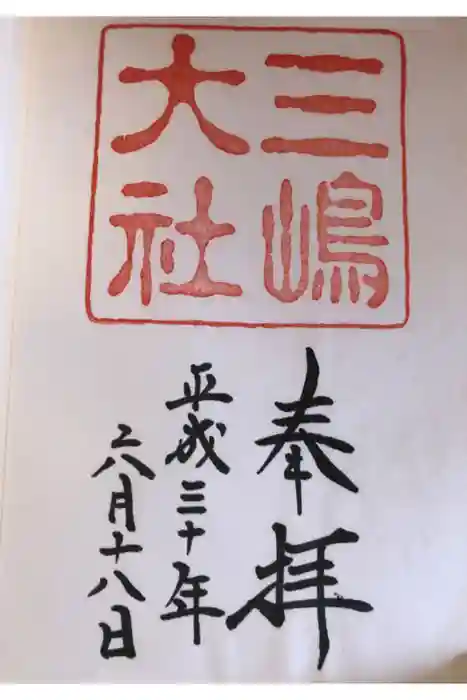 三嶋
大社
奉拝
平成三十年
六月十八日